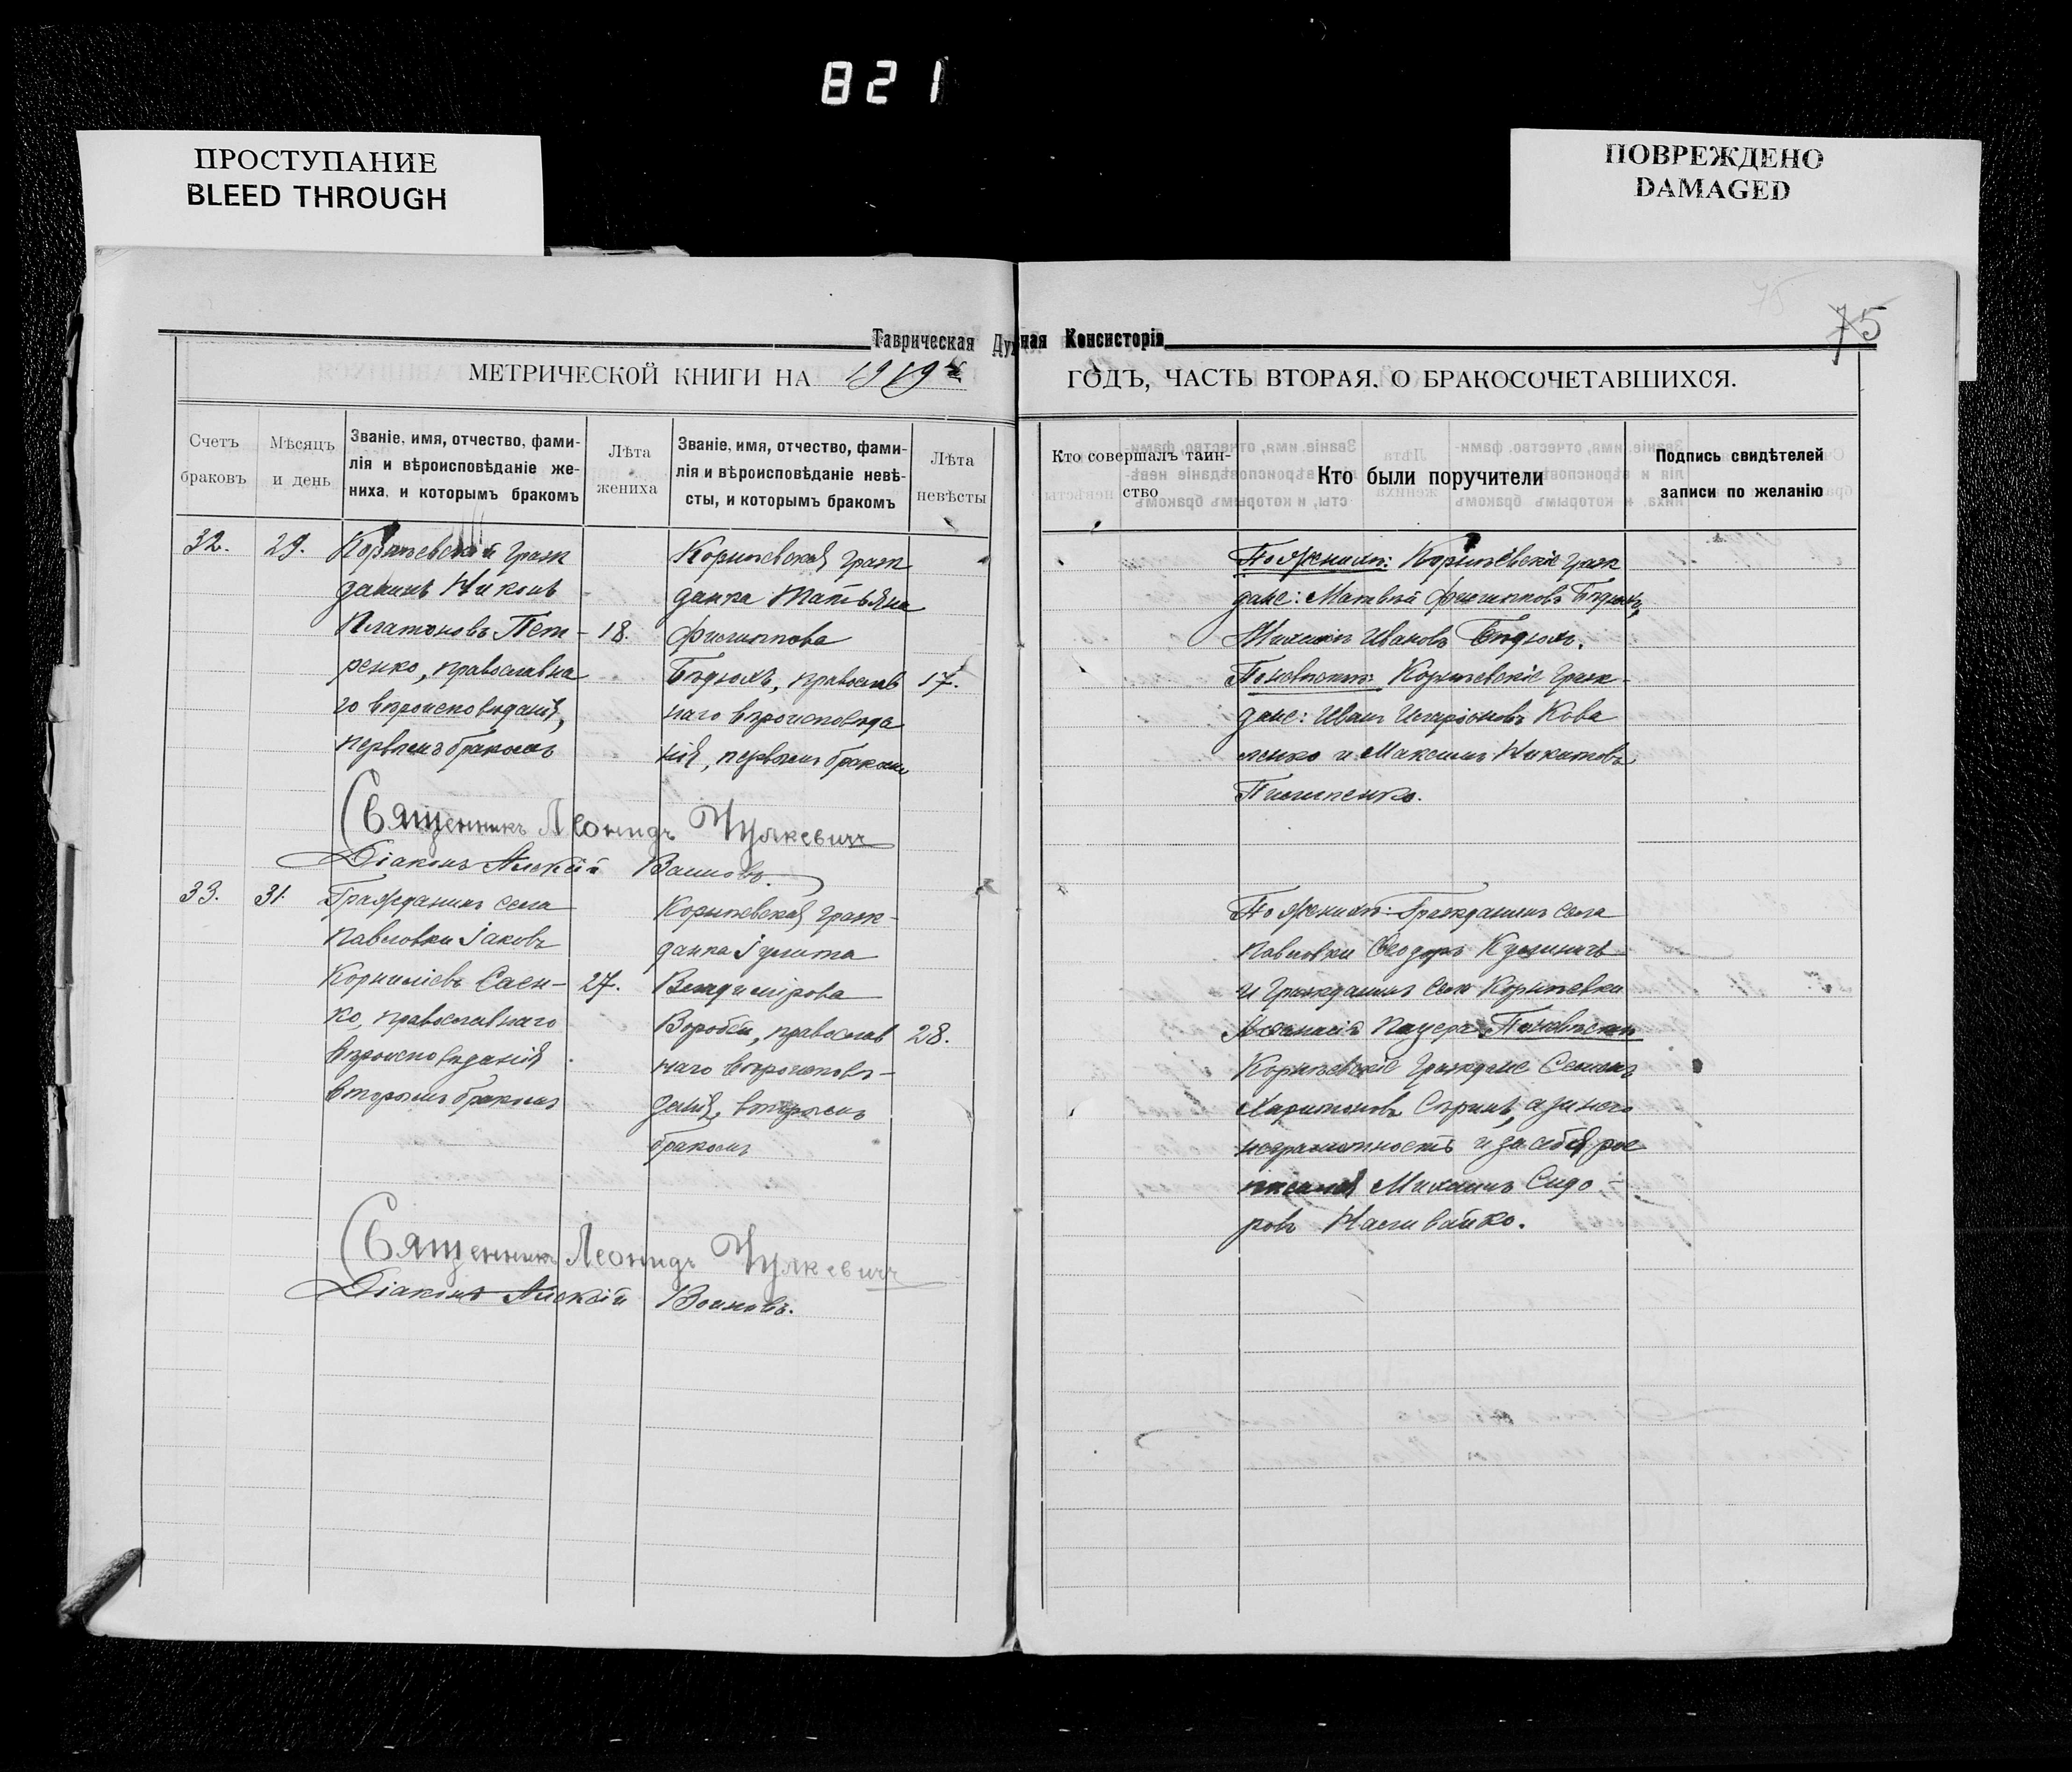 821
ПРОСТУПАНИЕ
BLEED THROUGH
ПОВРЕЖДЕНО
DAMAGED
75
Таврическая Духная Консисторія
МЕТРИЧЕСКОЙ КНИГИ НА 1919й ГОДЪ, ЧАСТЬ ВТОРАЯ. О БРАКОСОЧЕТАВШИХСЯ.
Счетъ
браковъ
Мѣсяцъ
и день
Званіе, имя, отчество, фами-
лія и вѣроисповѣданіе же-
ниха, и которымъ бракомъ
Лѣта
жениха
Званіе, имя, отчество, фами-
лія и вѣроисповѣданіе невѣ-
сты, и которымъ бракомъ
Лѣта
невѣсты
Кто совершалъ таин-
ство
Кто были поручители
Подпись свидѣтелей
записи по желанію
32.
29.
Горнѣевскій граж
данинъ Никонъ
Платоновъ Пет-
ренко, православна
го вѣроисповѣданія,
первымъ бракомъ
18.
Горнѣевская граж
данка Татьяна
Филиппова
Бѣдюхъ, православ
наго вѣроисповѣда
нія, первымъ бракомъ
17.
По женихѣ: Горнѣевскіе граж
дане: Матвѣй Филипповъ Бѣдюхъ,
Михаилъ Ивановъ Бѣдюхъ.
По невѣстѣ: Горнѣевскіе граж-
дане: Иванъ Иларіоновъ Кова
ленко и Максимъ Никитовъ
Пилипенко.
Священникъ Леонидъ Чулкевичъ
Діаконъ Алексій Воиновъ.
33.
31.
Гражданинъ села
Павловки Іаковъ
Корниліевъ Саен-
ко, православнаго
вѣроисповѣданія
вторымъ бракомъ
27.
Горнѣевская граж-
данка Іулита
Владимірова
Воробей, православ
наго вѣроисповѣ-
данія, вторымъ
бракомъ
28.
По женихѣ: Гражданинъ села
Павловки Ѳеодоръ
и Гражданинъ села Горнѣевки
Аѳанасій По невѣстѣ
Горнѣевскіе Граждане Семенъ
Харитоновъ а за него
неграмотность и за себя рос
писался Михаилъ Сидо-
ровъ Наливайко.
Священникъ Леонидъ Чулкевичъ
Діаконъ Алексій Воиновъ.